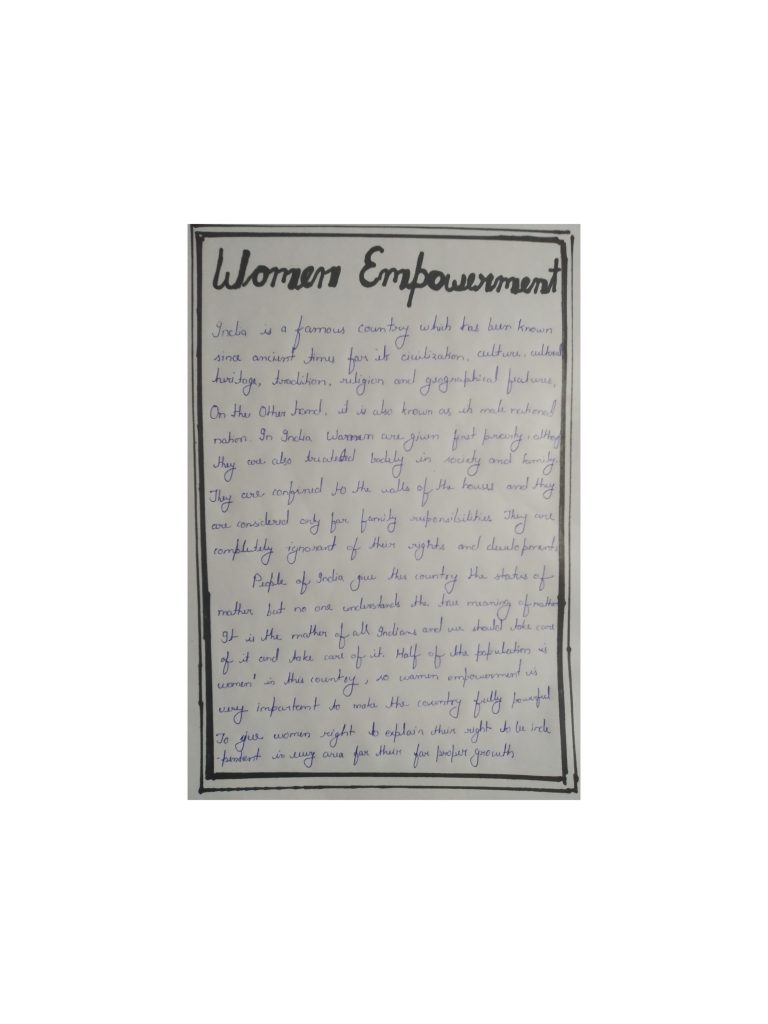 Women Empowerment
India is a famous country which has been known
since ancient times for its civilization, culture, cultural
heritage, tradition, religion and geographical features,
On the Other hand, it is also known as its male national
nation. In India Women are given first priority, althog
they are also treated badly in society and family.
They are confined to the walls of the houses and they
are considered only for family responsibilities They are
completely ignorant of their rights and developments
People of India give this country the status of
mother but no one understands the true meaning of mother
It is the mother of all Indians and we should take care
of it and take care of it. Half of the population is
women' in this country, so women empowerment is
very important to make the country fully powerful
To give women right to explain their right to be inde
-pendent in every area for their for proper growth